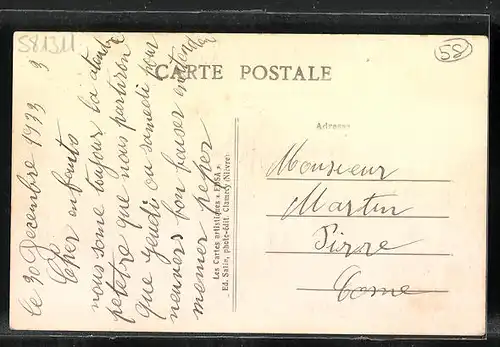 581311
58
CARTE POSTALE
Adresse
le 30 Decembre 1933 3
Cher enfants
nous some toujour la atendre
petetre que nous partiron
que gendis ou samedi pour
neuvers bon baiser
memer peper
Les Cartes artistiques « EDSA »
Ed. Salin, photo-édit. Clamecy (Nièvre)
Monsieur
Martin
Pirre
Cosne